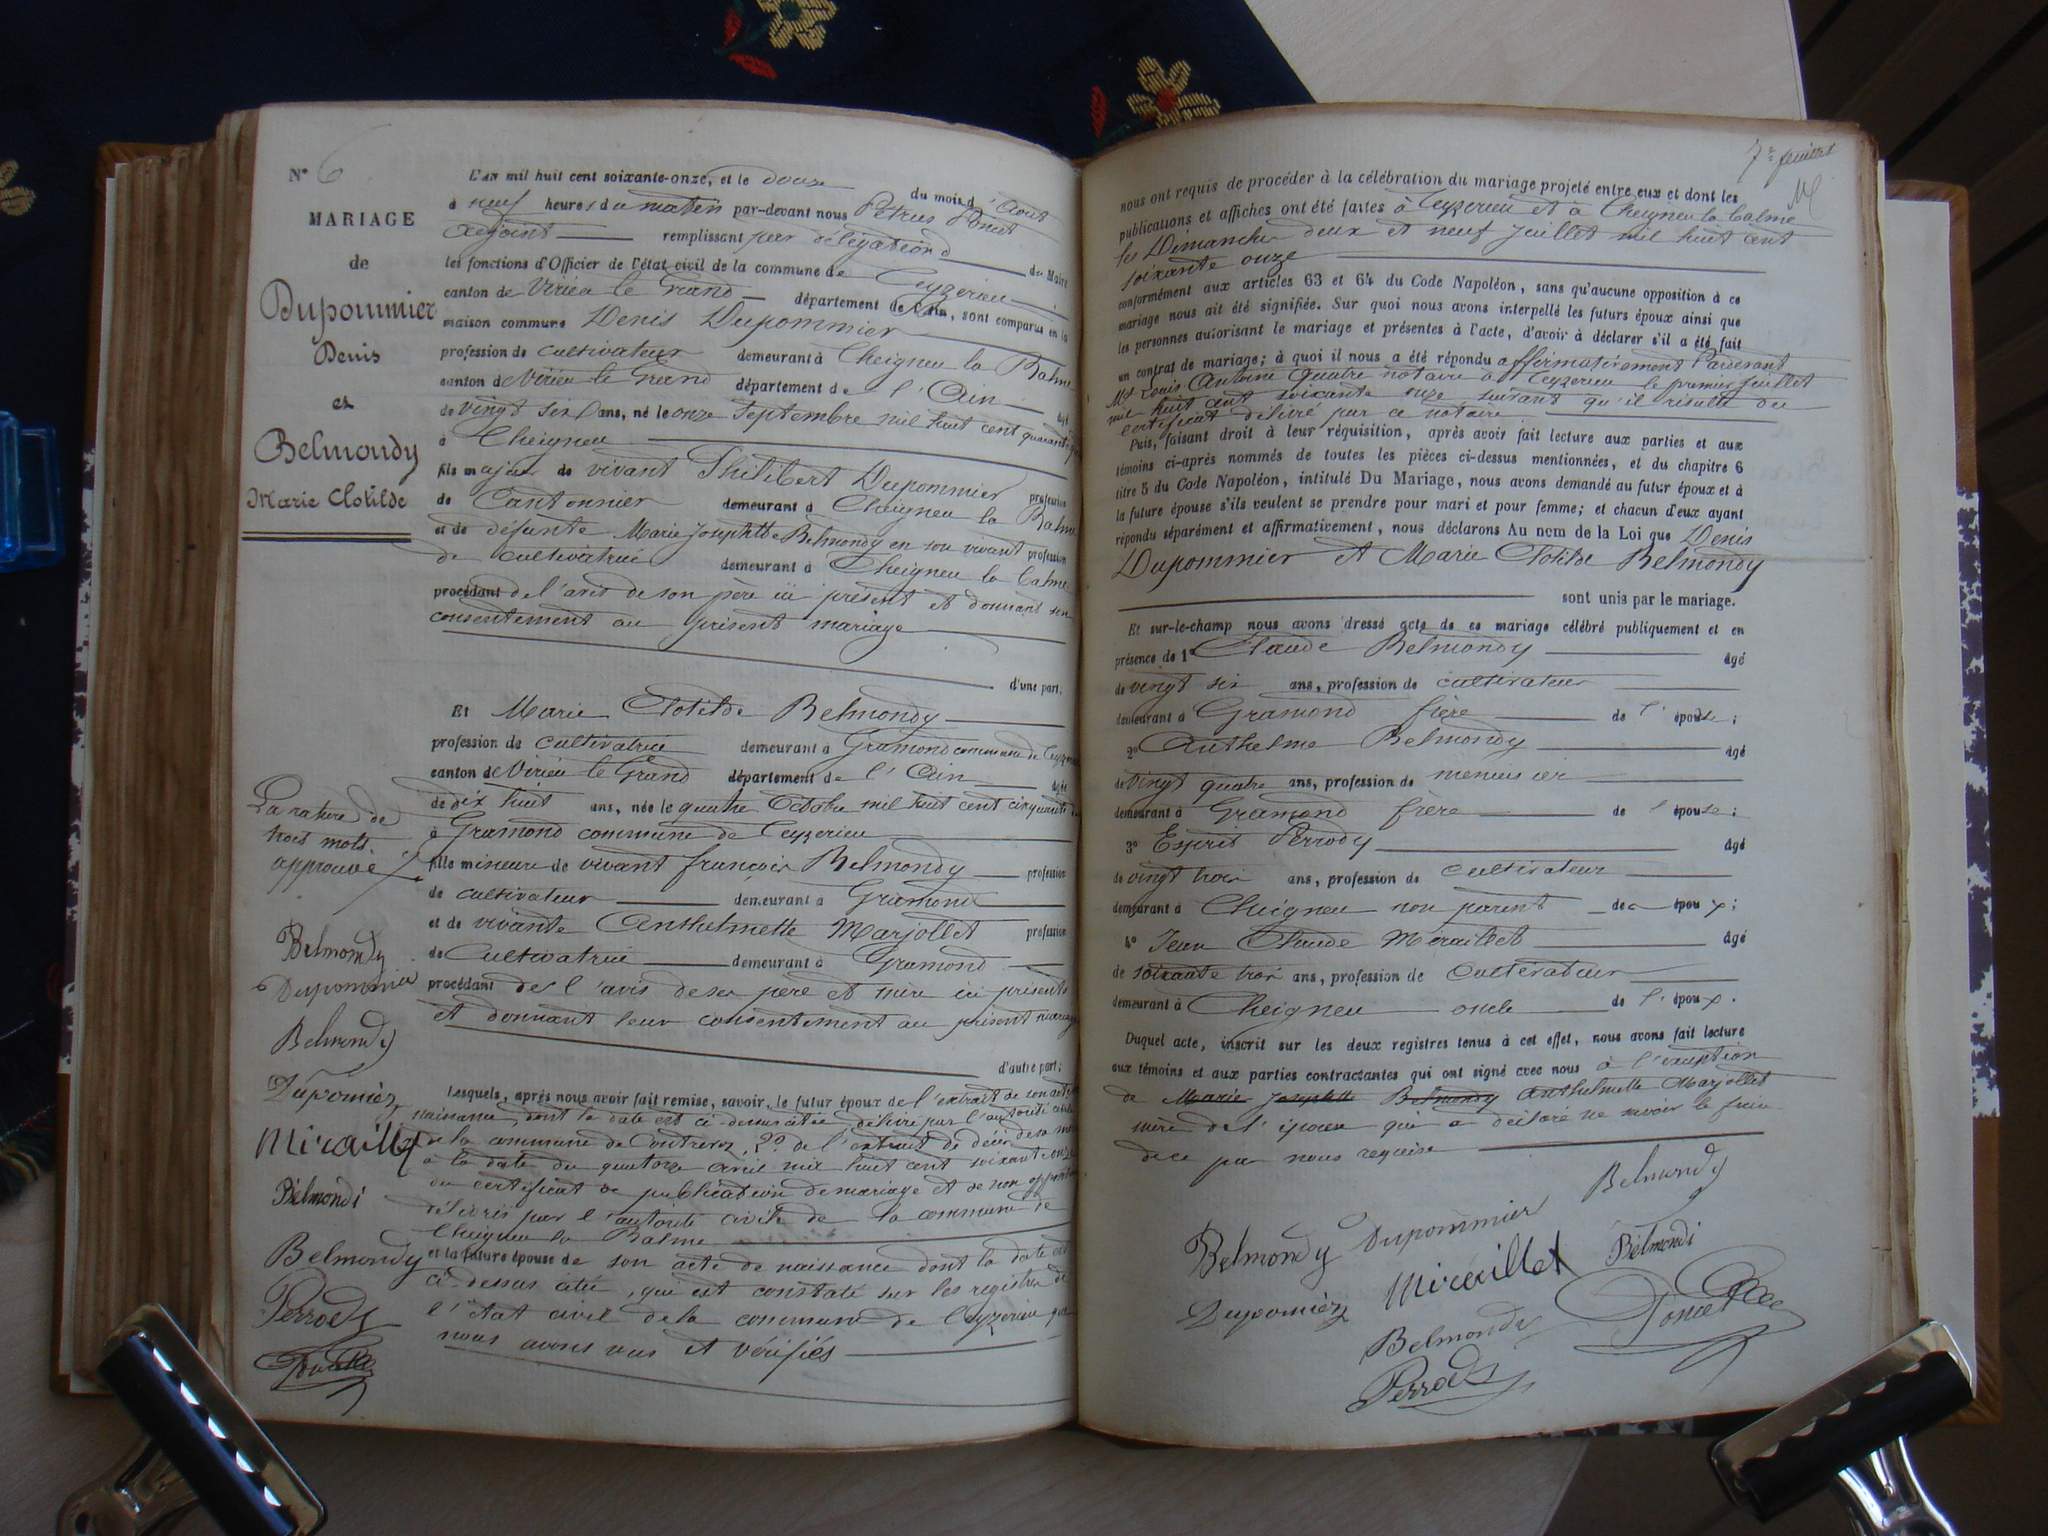 N° 6
MARIAGE
de
Dupommier
Denis
et
Belmondy
Marie Clotilde
La rature de
trois mots
approuvé
Belmondy
Dupommier
Belmondy
Dupomiez
Miraillet
Belmondi
Belmondy
Perrody
L'an mil huit cent soixante-onze, et le douze du mois d'août
à neuf heures du matin par-devant nous Pétrus Poncet
adjoint remplissant par délégation du Maire
les fonctions d'Officier de l'état civil de la commune de Ceyzerieu
canton de Virieu le Grand département de l'Ain, sont comparus en la
maison commune Denis Dupommier
profession de cultivateur demeurant à Cheigneu la Balme
canton de Virieu le Grand département de l'Ain âgé
de vingt six ans, né le onze Septembre mil huit cent quarante
à Cheigneu
fils majeur de vivant Philibert Dupommier profession
de Cantonnier demeurant à Cheigneu la Balme
et de défunte Marie Josephte Belmondy en son vivant profession
de cultivatrice demeurant à Cheigneu la Balme
procédant de l'avis de son père ici présent et donnant son
consentement au présent mariage
d'une part.
Et Marie Clotilde Belmondy
profession de cultivatrice demeurant à Gramond commune de Ceyzerieu
canton de Virieu le Grand département de l'Ain âgée
de dix huit ans, née le quatre Octobre mil huit cent cinquante
à Gramond commune de Ceyzerieu
fille mineure de vivant françois Belmondy profession
de cultivateur demeurant à Gramond
et de vivante Anthelmette Marjollet profession
de Cultivatrice demeurant à Gramond
procédant de l'avis de ses père et mère ici présents
et donnant leur consentement au présent mariage
d'autre part;
Lesquels, après nous avoir fait remise, savoir, le futur époux de l'extrait de son acte de
naissance dont la date est ci-dessus citée, délivré par l'autorité civile
de la commune de Contrevoz, 2° de l'extrait de décès de sa mère
à la date du quatorze avril mil huit cent soixante onze
du certificat de publication de mariage et de non opposition
délivrés par l'autorité civile de la commune de
Cheigneu la Balme
et la future épouse de son acte de naissance dont la date est
ci-dessus citée, qui est constaté sur les registres de
l'état civil de la commune de Ceyzerieu que
nous avons vus et vérifiés
7e feuillet
nous ont requis de procéder à la célébration du mariage projeté entre eux et dont les
publications et affiches ont été faites à Ceyzerieu et à Cheigneu la balme
les Dimanches deux et neuf juillet mil huit cent
soixante onze
conformément aux articles 63 et 64 du Code Napoléon, sans qu'aucune opposition à ce
mariage nous ait été signifiée. Sur quoi nous avons interpellé les futurs époux ainsi que
les personnes autorisant le mariage et présentes à l'acte, d'avoir à déclarer s'il a été fait
un contrat de mariage; à quoi il nous a été répondu affirmativement Pardevant
Me Louis Antoine Quatre notaire à Ceyzerieu le premier juillet
mil huit cent soixante onze suivant qu'il résulte du
certificat délivré par ce notaire
Puis, faisant droit à leur réquisition, après avoir fait lecture aux parties et aux
témoins ci-après nommés de toutes les pièces ci-dessus mentionnées, et du chapitre 6
titre 5 du Code Napoléon, intitulé Du Mariage, nous avons demandé au futur époux et à
la future épouse s'ils veulent se prendre pour mari et pour femme; et chacun d'eux ayant
répondu séparément et affirmativement, nous déclarons Au nom de la Loi que Denis
Dupommier et Marie Clotilde Belmondy
sont unis par le mariage.
Et sur-le-champ nous avons dressé acte de ce mariage célébré publiquement et en
présence de 1° Claude Belmondy âgé
de vingt six ans, profession de cultivateur
demeurant à Gramond frère de l'épouse;
2° Anthelme Belmondy âgé
de vingt quatre ans, profession de menuisier
demeurant à Gramond frère de l'épouse;
3° Esprit Perrody âgé
de vingt trois ans, profession de cultivateur
demeurant à Cheigneu non parent des époux;
4° Jean Claude Miraillet âgé
de soixante trois ans, profession de Cultivateur
demeurant à Cheigneu oncle de l'époux.
Duquel acte, inscrit sur les deux registres tenus à cet effet, nous avons fait lecture
aux témoins et aux parties contractantes qui ont signé avec nous à l'exception
de Marie Josephte Belmondy Anthelmette Marjollet
mère de l'épouse qui a déclaré ne savoir le faire
de ce par nous requise
Belmondy
Belmondy Dupommier
Miraillet Belmondi
Dupomiez
Belmondy Poncet
Perrody